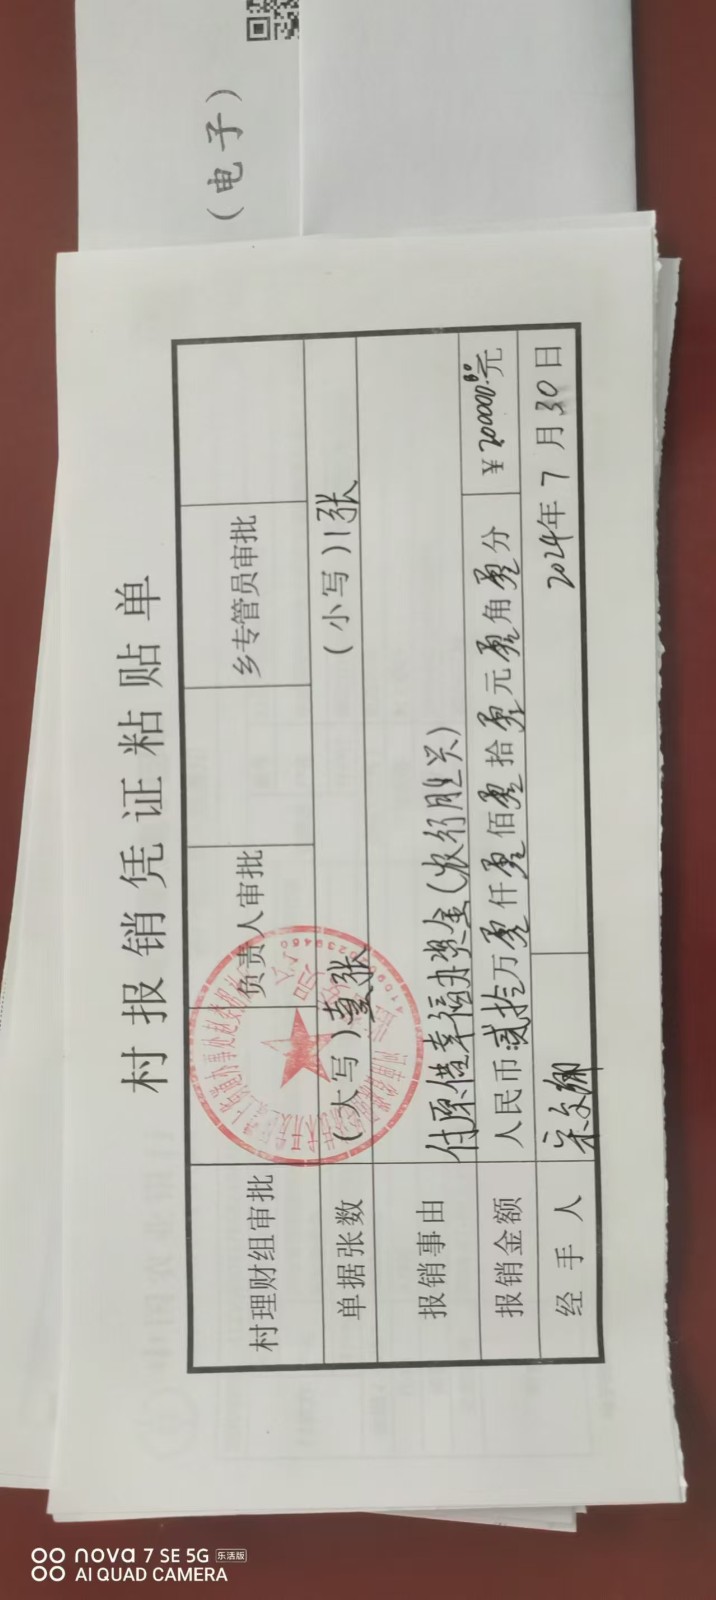 (电子)
村报销凭证粘贴单
村理财组审批 负责人审批 乡专管员审批
单据张数 (大写)壹张 (小写)1张
报销事由 付原借幸福办资金(农行胜兴)
报销金额 人民币贰拾万零仟零佰零拾零元零角零分 ¥200000.00元
经手人 2024年7月30日
nova 7 SE 5G 乐活版
AI QUAD CAMERA